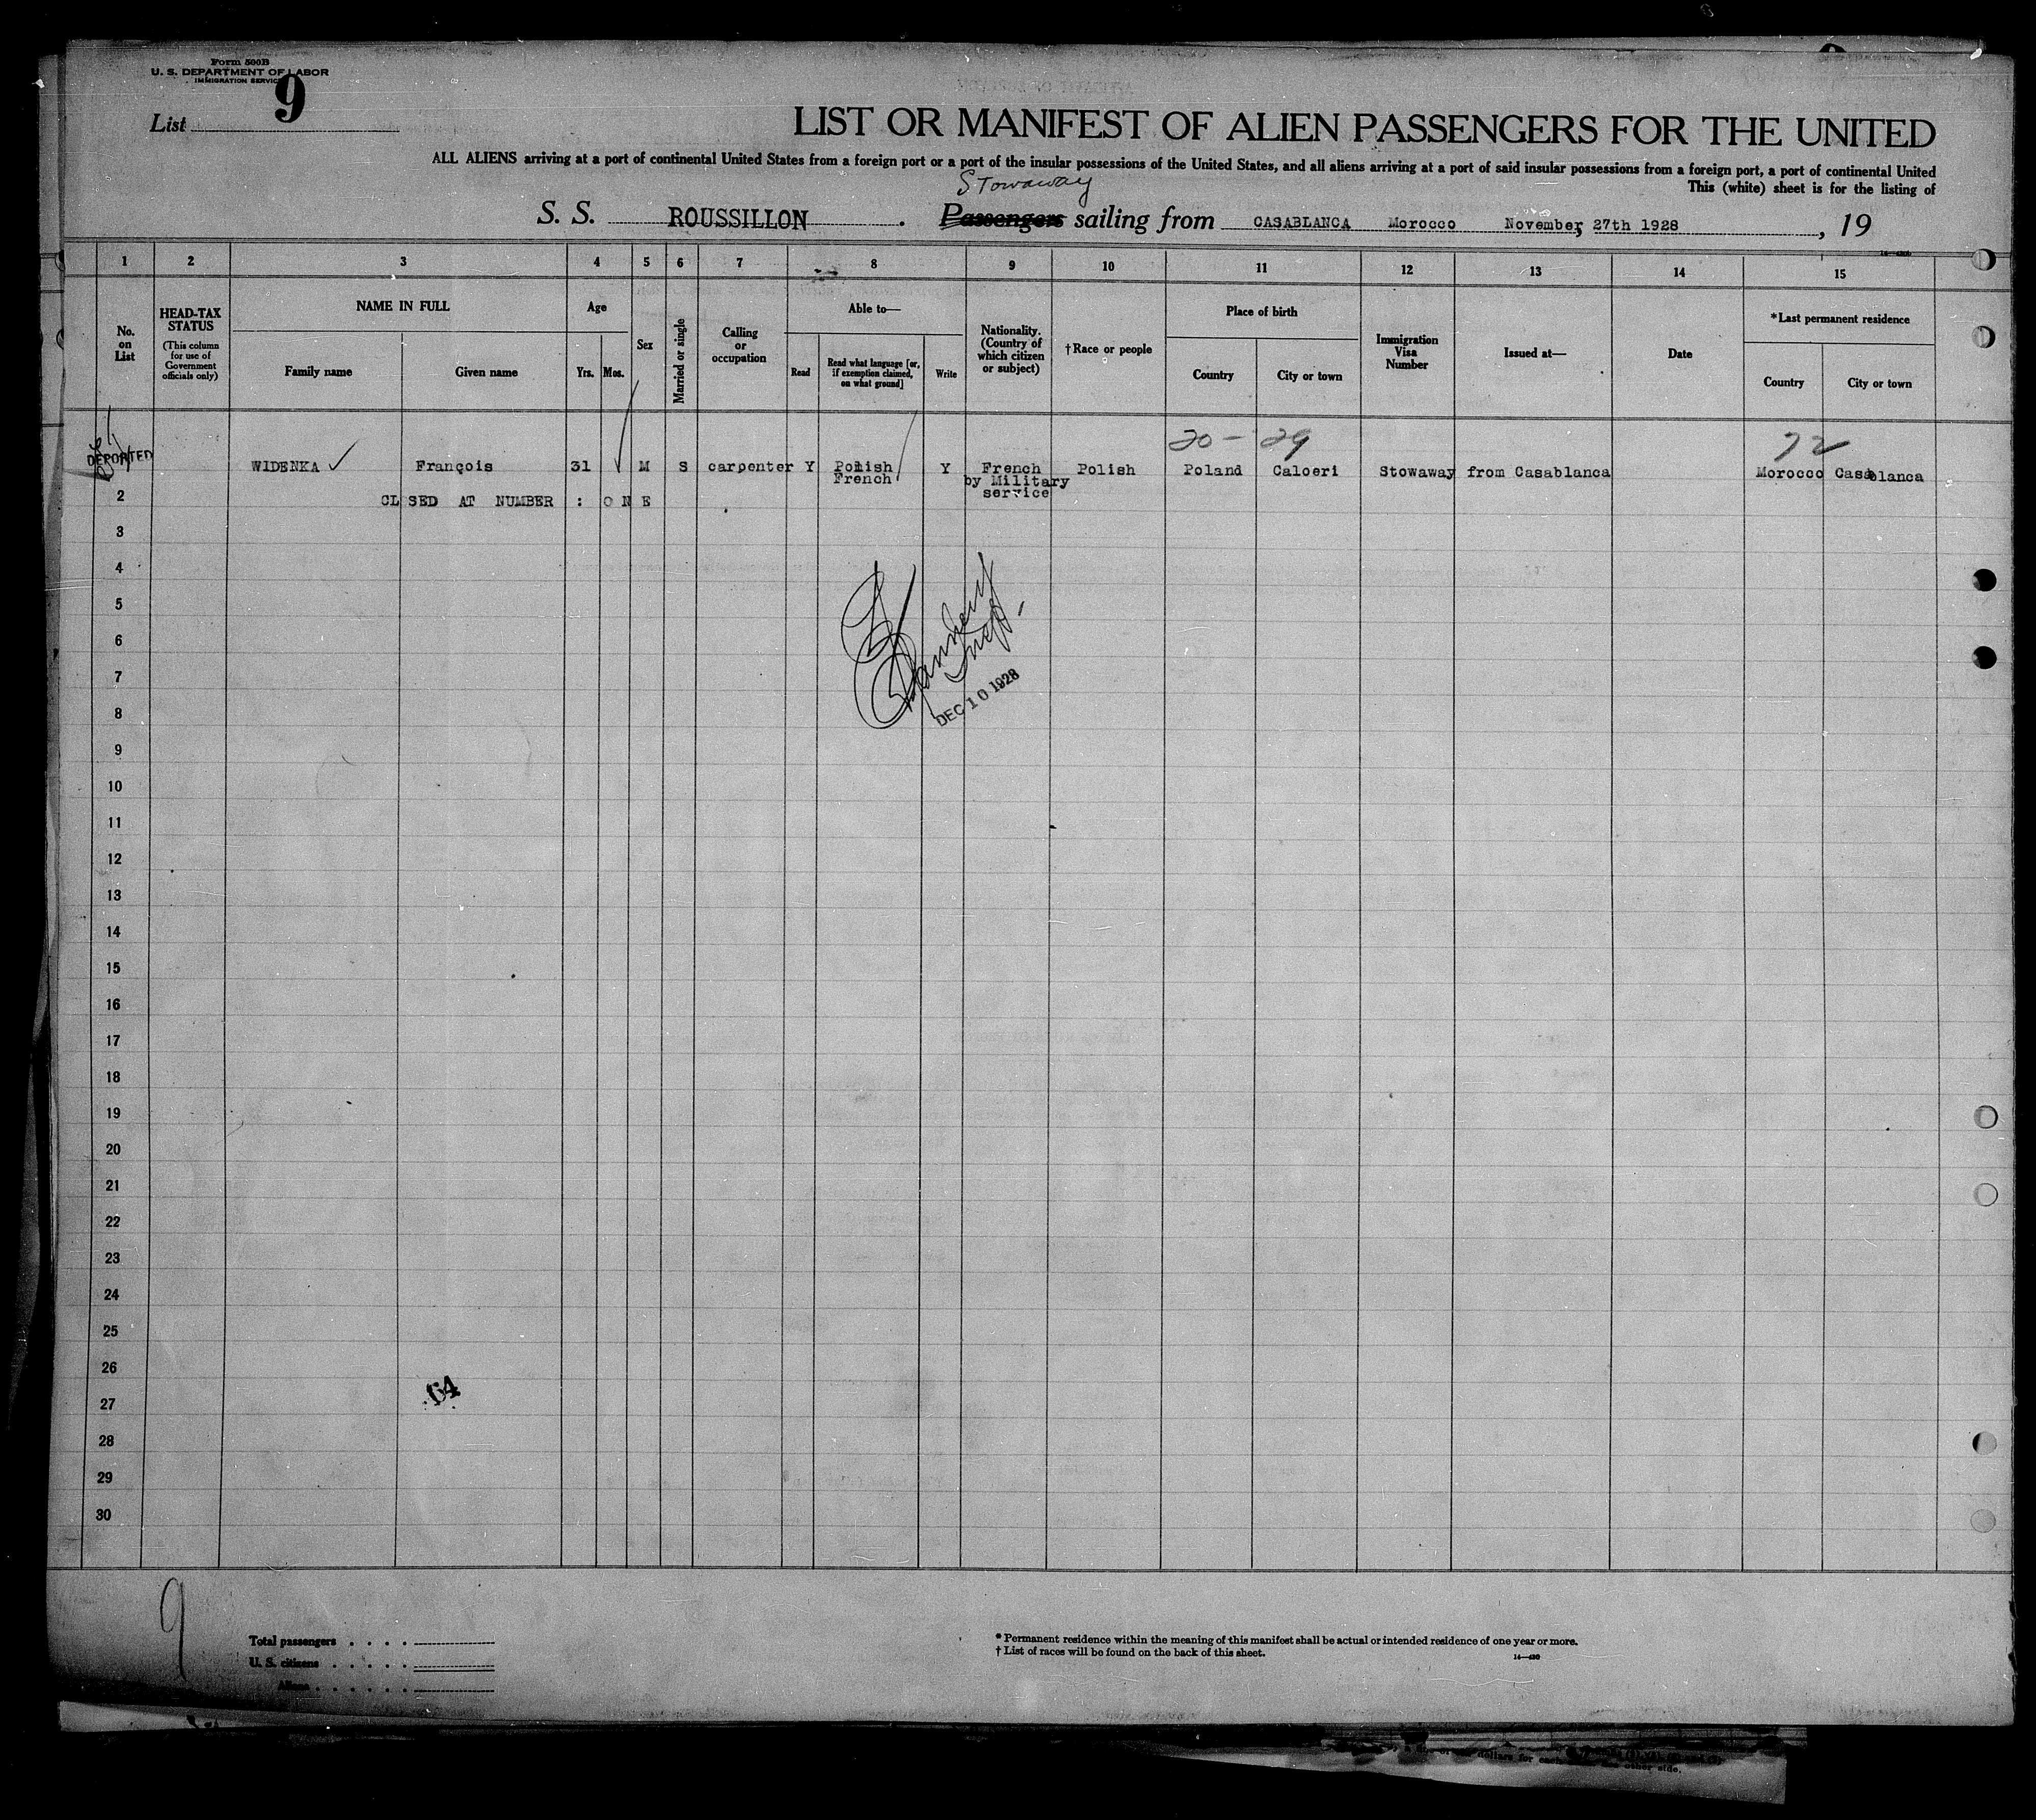 Form 500B
U. S. DEPARTMENT OF LABOR
IMMIGRATION SERVICE
List 9
LIST OR MANIFEST OF ALIEN PASSENGERS FOR THE UNITED
ALL ALIENS arriving at a port of continental United States from a foreign port or a port of the insular possessions of the United States, and all aliens arriving at a port of said insular possessions from a foreign port, a port of continental United
This (white) sheet is for the listing of
Stowaway
S. S. ROUSSILLON . Passengers sailing from CASABLANCA Morocco November, 27th 1928 , 19
1 2 3 4 5 6 7 8 9 10 11 12 13 14 15
No. on List
HEAD-TAX STATUS
(This column for use of Government officials only)
NAME IN FULL
Family name
Given name
Age
Yrs. Mos.
Sex
Married or single
Calling or occupation
Able to—
Read
Read what language [or, if exemption claimed, on what ground]
Write
Nationality. (Country of which citizen or subject)
†Race or people
Place of birth
Country
City or town
Immigration Visa Number
Issued at—
Date
*Last permanent residence
Country
City or town
20 - 29 72
DEPORTED WIDENKA François 31 M S carpenter Y Polish Y French Polish Poland Caloeri Stowaway from Casablanca Morocco Casablanca
French by Military
service
2 CL SED AT NUMBER : O N E
3
4
5
6
7
8
DEC 10 1928
9
10
11
12
13
14
15
16
17
18
19
20
21
22
23
24
25
26
64
27
28
29
30
9
Total passengers . . . .
U. S. citizens . . . . .
Aliens . . . . . .
* Permanent residence within the meaning of this manifest shall be actual or intended residence of one year or more.
† List of races will be found on the back of this sheet.
14—430
other side.